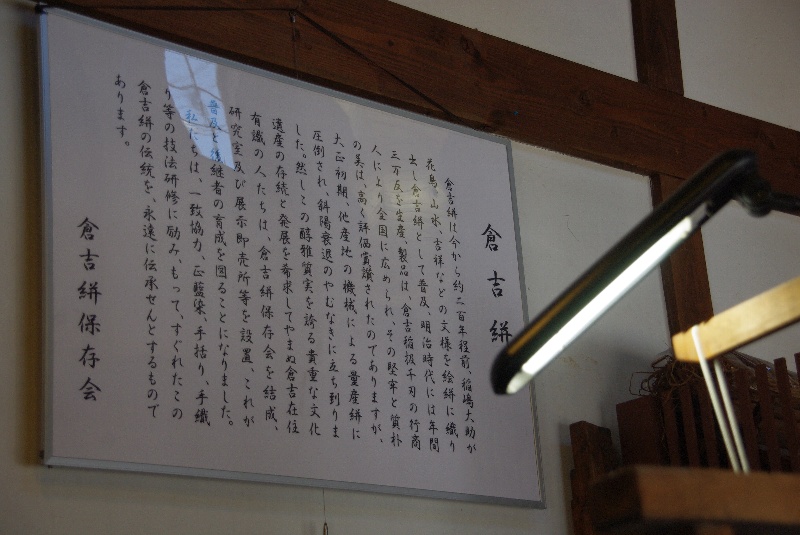 倉吉絣
倉吉絣は今から約二百年程前、稲嶋大助が
花鳥、山水、吉祥などの文様を絵絣に織り
出し倉吉絣として普及、明治時代には年間
三万反を生産、製品は、倉吉稲扱千刃の行商
人により全国に広められ、その堅牢と質朴
の美は、高く評価賞讃されたのでありますが、
大正初期、他産地の機械による量産絣に
圧倒され、斜陽衰退のやむなきに立ち到りま
した。然しこの醇雅質実を誇る貴重な文化
遺産の存続と発展を希求してやまぬ倉吉在住
有識の人たちは、倉吉絣保存会を結成、
研究室及び展示即売所等を設置、これが
普及と後継者の育成を図ることになりました。
私たちは、一致協力、正藍染、手括り、手織
り等の技法研修に励み、もって、すぐれたこの
倉吉絣の伝統を、永遠に伝承せんとするもので
あります。
倉吉絣保存会